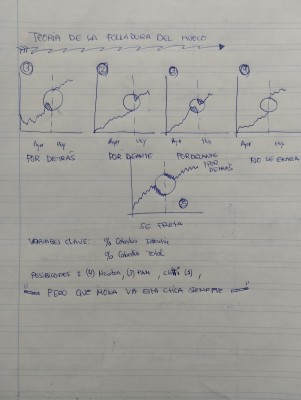 TEORIA DE LA FOLLADURA DEL HUECO
1 2 3 4
Ayer Hoy Ayer Hoy Ayer Hoy Ayer Hoy
POR DETRÁS POR DELANTE POR DELANTE NO LE ENTRA
Y POR DETRÁS
5
SE FROTA
VARIABLES CLAVE: % Cuerpo
% Cuerpo Total
POSIBILIDADES: (4)
PERO QUE MONA VA ESTA CHICA SIEMPRE